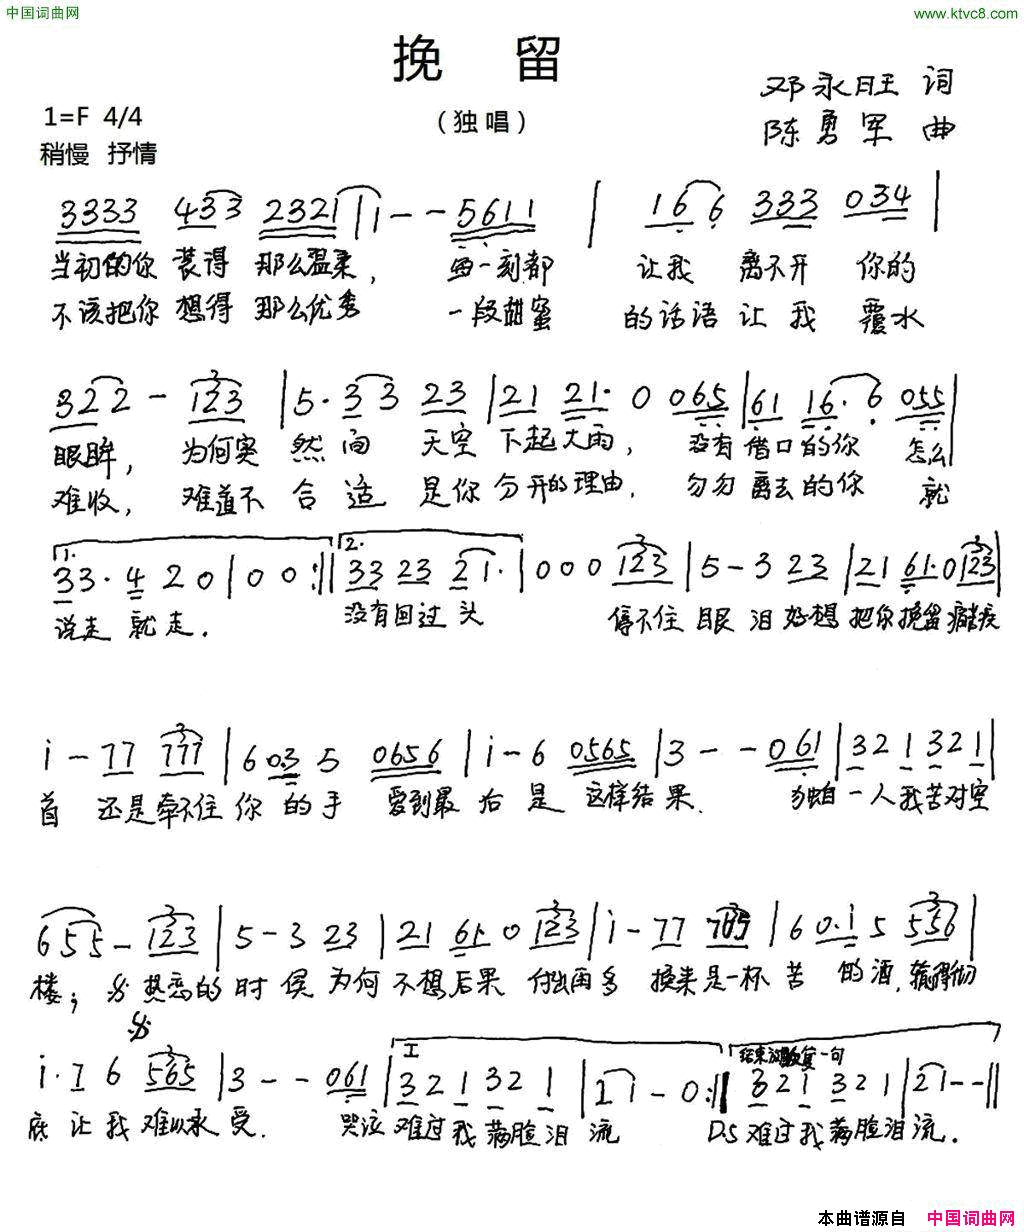 中国词曲网
www.ktvc8.com
挽 留
邓永旺 词
1=F 4/4
(独唱)
陈勇军 曲
稍慢 抒情
3333 433 2321 | 1 - - 5611 | 166 333 034 |
当初的你 装得 那么温柳, 一刻都 让我 离不开 你的
不该把你 想得 那么优秀 一段甜蜜 的话语 让我 覆水
322 - 123 | 5· 33 23 | 21 21· 0 065 | 61 16· 6 055 |
眼眸, 为何突然向 天空 下起大雨, 没有借口的你 怎么
难收, 难道不合适 是你分开的理由, 匆匆离去的你 就
1. 33·4 20 | 00 :|| 2. 33 23 21· | 000 123 | 5 - 3 23 | 21 61·0 123 |
说走就走. 没有回过头 停不住眼泪好想把你挽留
i - 77 777 | 6 0·3 5 0656 | i - 6 0565 | 3 - - 061 | 321 321 |
首 还是牵不住你的手 爱到最后是 这样结果. 独自一人我苦对空
655 - 123 | 5 - 3 23 | 21 61· 0 123 | i - 77 765 | 6 0·i 5 556 |
楼; 热恋的时候为何不想后果 付出再多 换来是一杯苦的酒, 输得彻
i· i 6 565 | 3 - - 061 | I 321 321 | 21 - 0 :|| 结束 句 321 321 | 21 - - ||
底 让我难以承受. 哭泣难过我满脸泪流 D.S 难过我满脸泪流.
本曲谱源自 中国词曲网